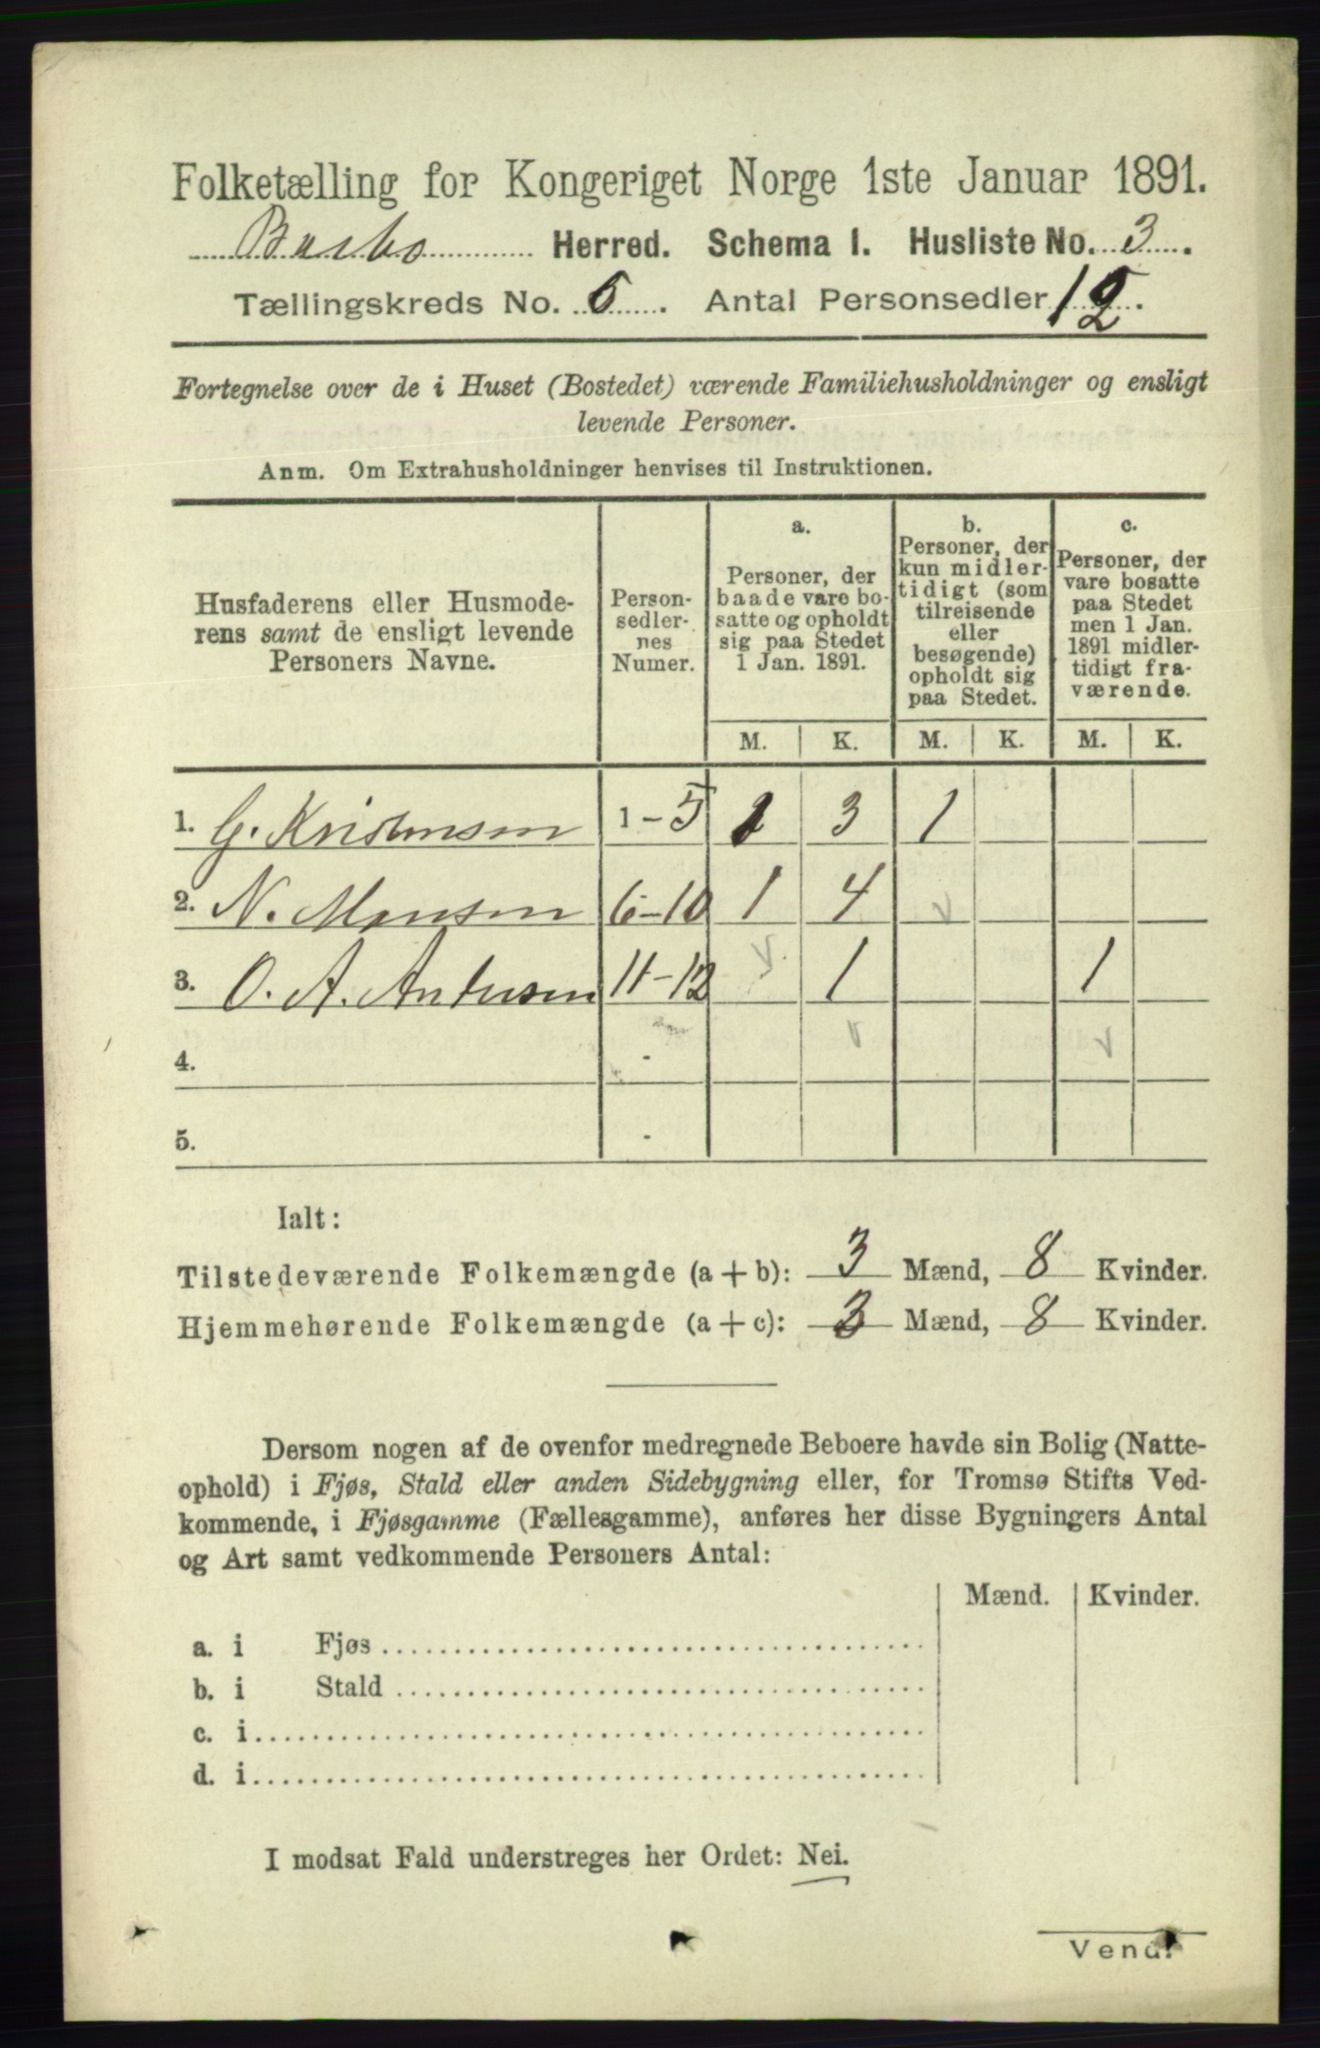 Folketælling for Kongeriget Norge 1ste Januar 1891.
Barbo Herred. Schema I. Husliste No. 3.
Tællingskreds No. 6. Antal Personsedler 12.
Fortegnelse over de i Huset (Bostedet) værende Familiehusholdninger og ensligt
levende Personer.
Anm. Om Extrahusholdninger henvises til Instruktionen.
Husfaderens eller Husmode-
rens samt de ensligt levende
Personers Navne.
Person-
sedler-
nes
Numer.
a.
Personer, der
baade vare bo-
satte og opholdt
sig paa Stedet
1 Jan. 1891.
b.
Personer, der
kun midler-
tidigt (som
tilreisende
eller
besøgende)
opholdt sig
paa Stedet.
c.
Personer, der
vare bosatte
paa Stedet
men 1 Jan.
1891 midler-
tidigt fra-
værende.
M. K. M. K. M. K.
1. G. Kristensen 1-5 1 3 1
2. N. Monsen 6-10 1 4
3. O. A. Andersen 11-12 1 1
4. -
5. -
Ialt:
Tilstedeværende Folkemængde (a+b): 3 Mænd, 8 Kvinder.
Hjemmehørende Folkemængde (a+c): 3 Mænd, 8 Kvinder.
Dersom nogen af de ovenfor medregnede Beboere havde sin Bolig (Natte-
ophold) i Fjøs, Stald eller anden Sidebygning eller, for Tromsø Stifts Ved-
kommende, i Fjøsgamme (Fællesgamme), anføres her disse Bygningers Antal
og Art samt vedkommende Personers Antal:
Mænd. Kvinder.
a. i Fjøs
b. i Stald
c. i
d. i
I modsat Fald understreges her Ordet: Nei.
Vend!